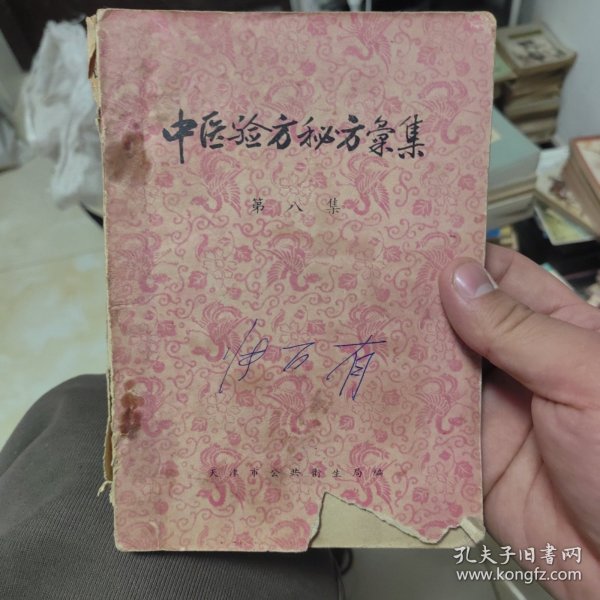 中医验方秘方彙集
第八集
天津市公共衛生局編
孔夫子旧書网
www.kongfz.com